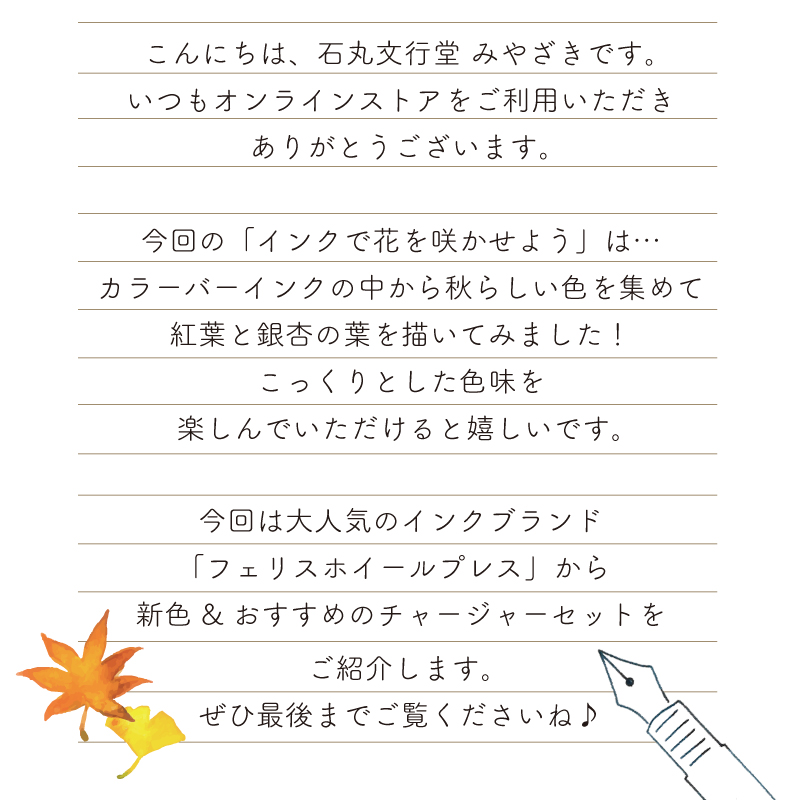 こんにちは、石丸文行堂 みやざきです。
いつもオンラインストアをご利用いただき
ありがとうございます。
今回の「インクで花を咲かせよう」は…
カラーバーインクの中から秋らしい色を集めて
紅葉と銀杏の葉を描いてみました！
こっくりとした色味を
楽しんでいただけると嬉しいです。
今回は大人気のインクブランド
「フェリスホイールプレス」から
新色 & おすすめのチャージャーセットを
ご紹介します。
ぜひ最後までご覧くださいね♪